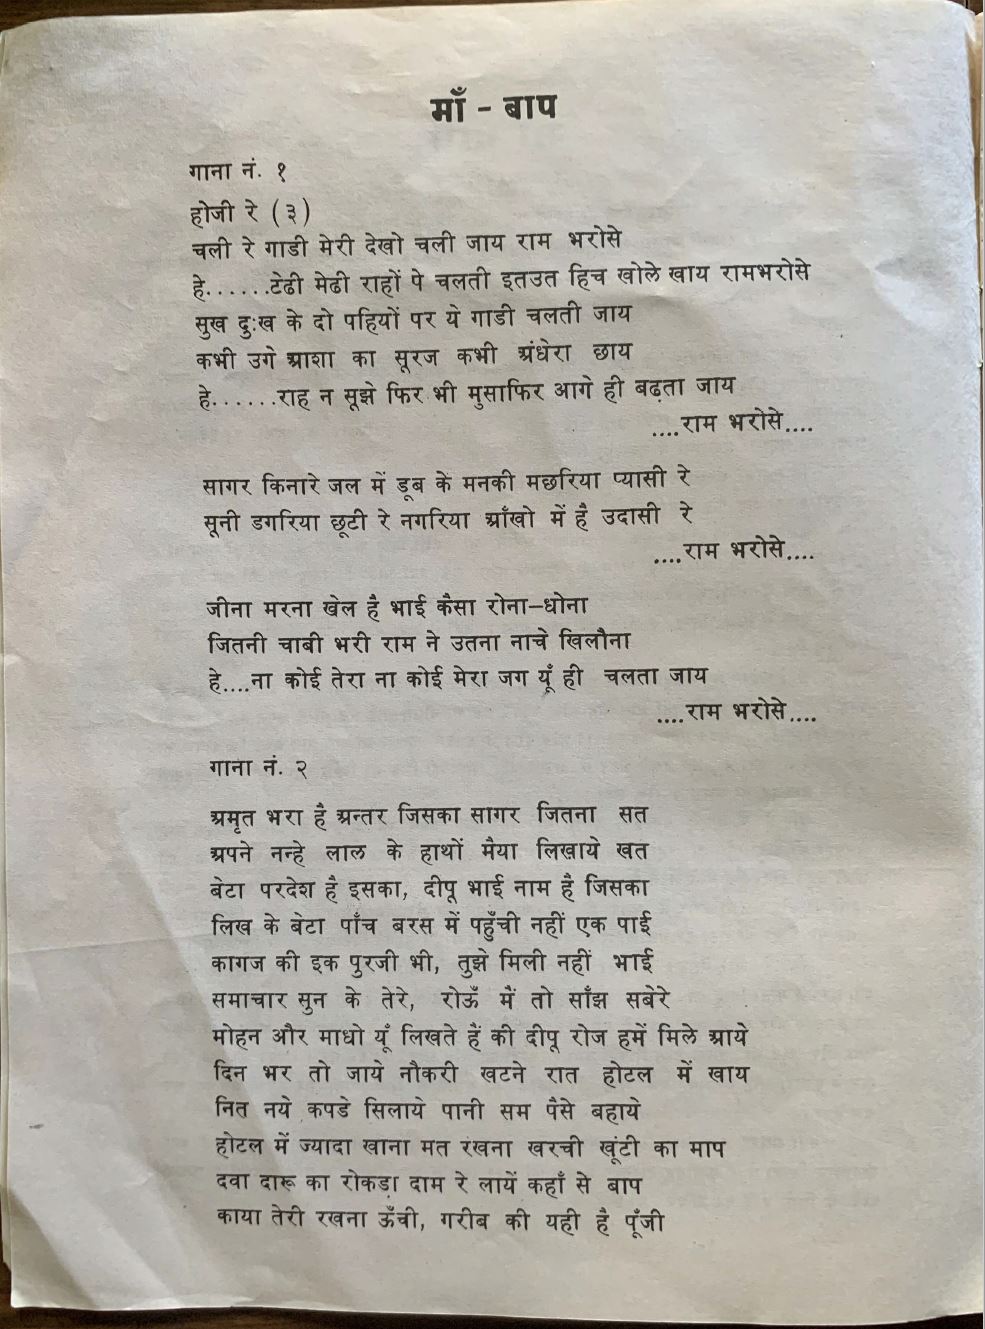 माँ - बाप
गाना नं. १
होजी रे (३)
चली रे गाडी मेरी देखो चली जाय राम भरोसे
हे......टेढी मेढी राहों पे चलती इतउत हिच खोले खाय रामभरोसे
सुख दुःख के दो पहियों पर ये गाडी चलती जाय
कभी उगे आशा का सूरज कभी अंधेरा छाय
हे......राह न सूझे फिर भी मुसाफिर आगे ही बढ़ता जाय
....राम भरोसे....
सागर किनारे जल में डूब के मनकी मछरिया प्यासी रे
सूनी डगरिया छूटी रे नगरिया आँखो में है उदासी रे
....राम भरोसे....
जीना मरना खेल है भाई कैसा रोना-धोना
जितनी चाबी भरी राम ने उतना नाचे खिलौना
हे....ना कोई तेरा ना कोई मेरा जग यूँ ही चलता जाय
....राम भरोसे....
गाना नं. २
अमृत भरा है अन्तर जिसका सागर जितना सत
अपने नन्हे लाल के हाथों मैया लिखाये खत
बेटा परदेश है इसका, दीपू भाई नाम है जिसका
लिख के बेटा पाँच बरस में पहुँची नहीं एक पाई
कागज की इक पुरजी भी, तुझे मिली नहीं भाई
समाचार सुन के तेरे, रोऊँ मैं तो साँझ सबेरे
मोहन और माधो यूँ लिखते हैं की दीपू रोज हमें मिले आये
दिन भर तो जाये नौकरी खटने रात होटल में खाय
नित नये कपडे सिलाये पानी सम पैसे बहाये
होटल में ज्यादा खाना मत रखना खरची खूंटी का माप
दवा दारू का रोकड़ा दाम रे लायें कहाँ से बाप
काया तेरी रखना ऊँची, गरीब की यही है पूँजी